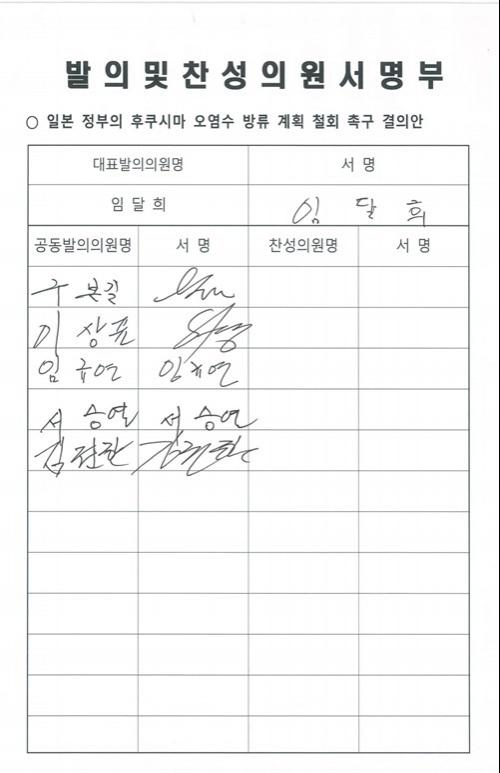 발의및찬성의원서명부
○ 일본 정부의 후쿠시마 오염수 방류 계획 철회 촉구 결의안
대표발의의원명 서 명
임 달 희 임 달 희
공동발의의원명 서 명 찬성의원명 서 명
구 본길
이 상표
임 규연 임규연
서 승열 서 승열
김권한 김권한